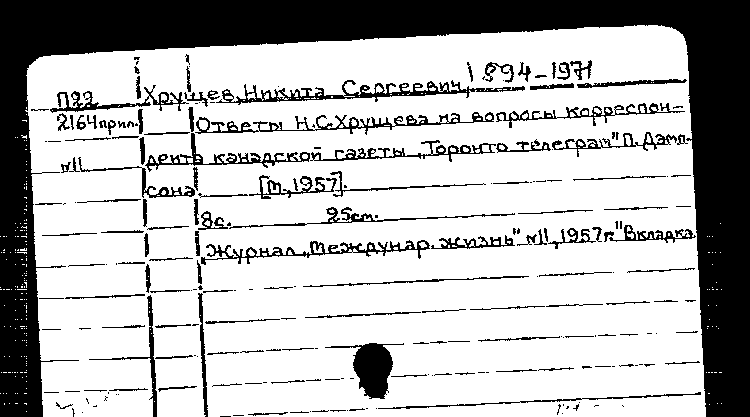 П22 Хрущев, Никита Сергеевич, 1894-1971
2164 прил. Ответы Н.С.Хрущева на вопросы корреспон=
№11 дента канадской газеты „Торонто телеграм" П. Дэмп-
сона. [М., 1957].
8с. 25см.
Журнал „Междунар. жизнь" №11, 1957г." Вкладка